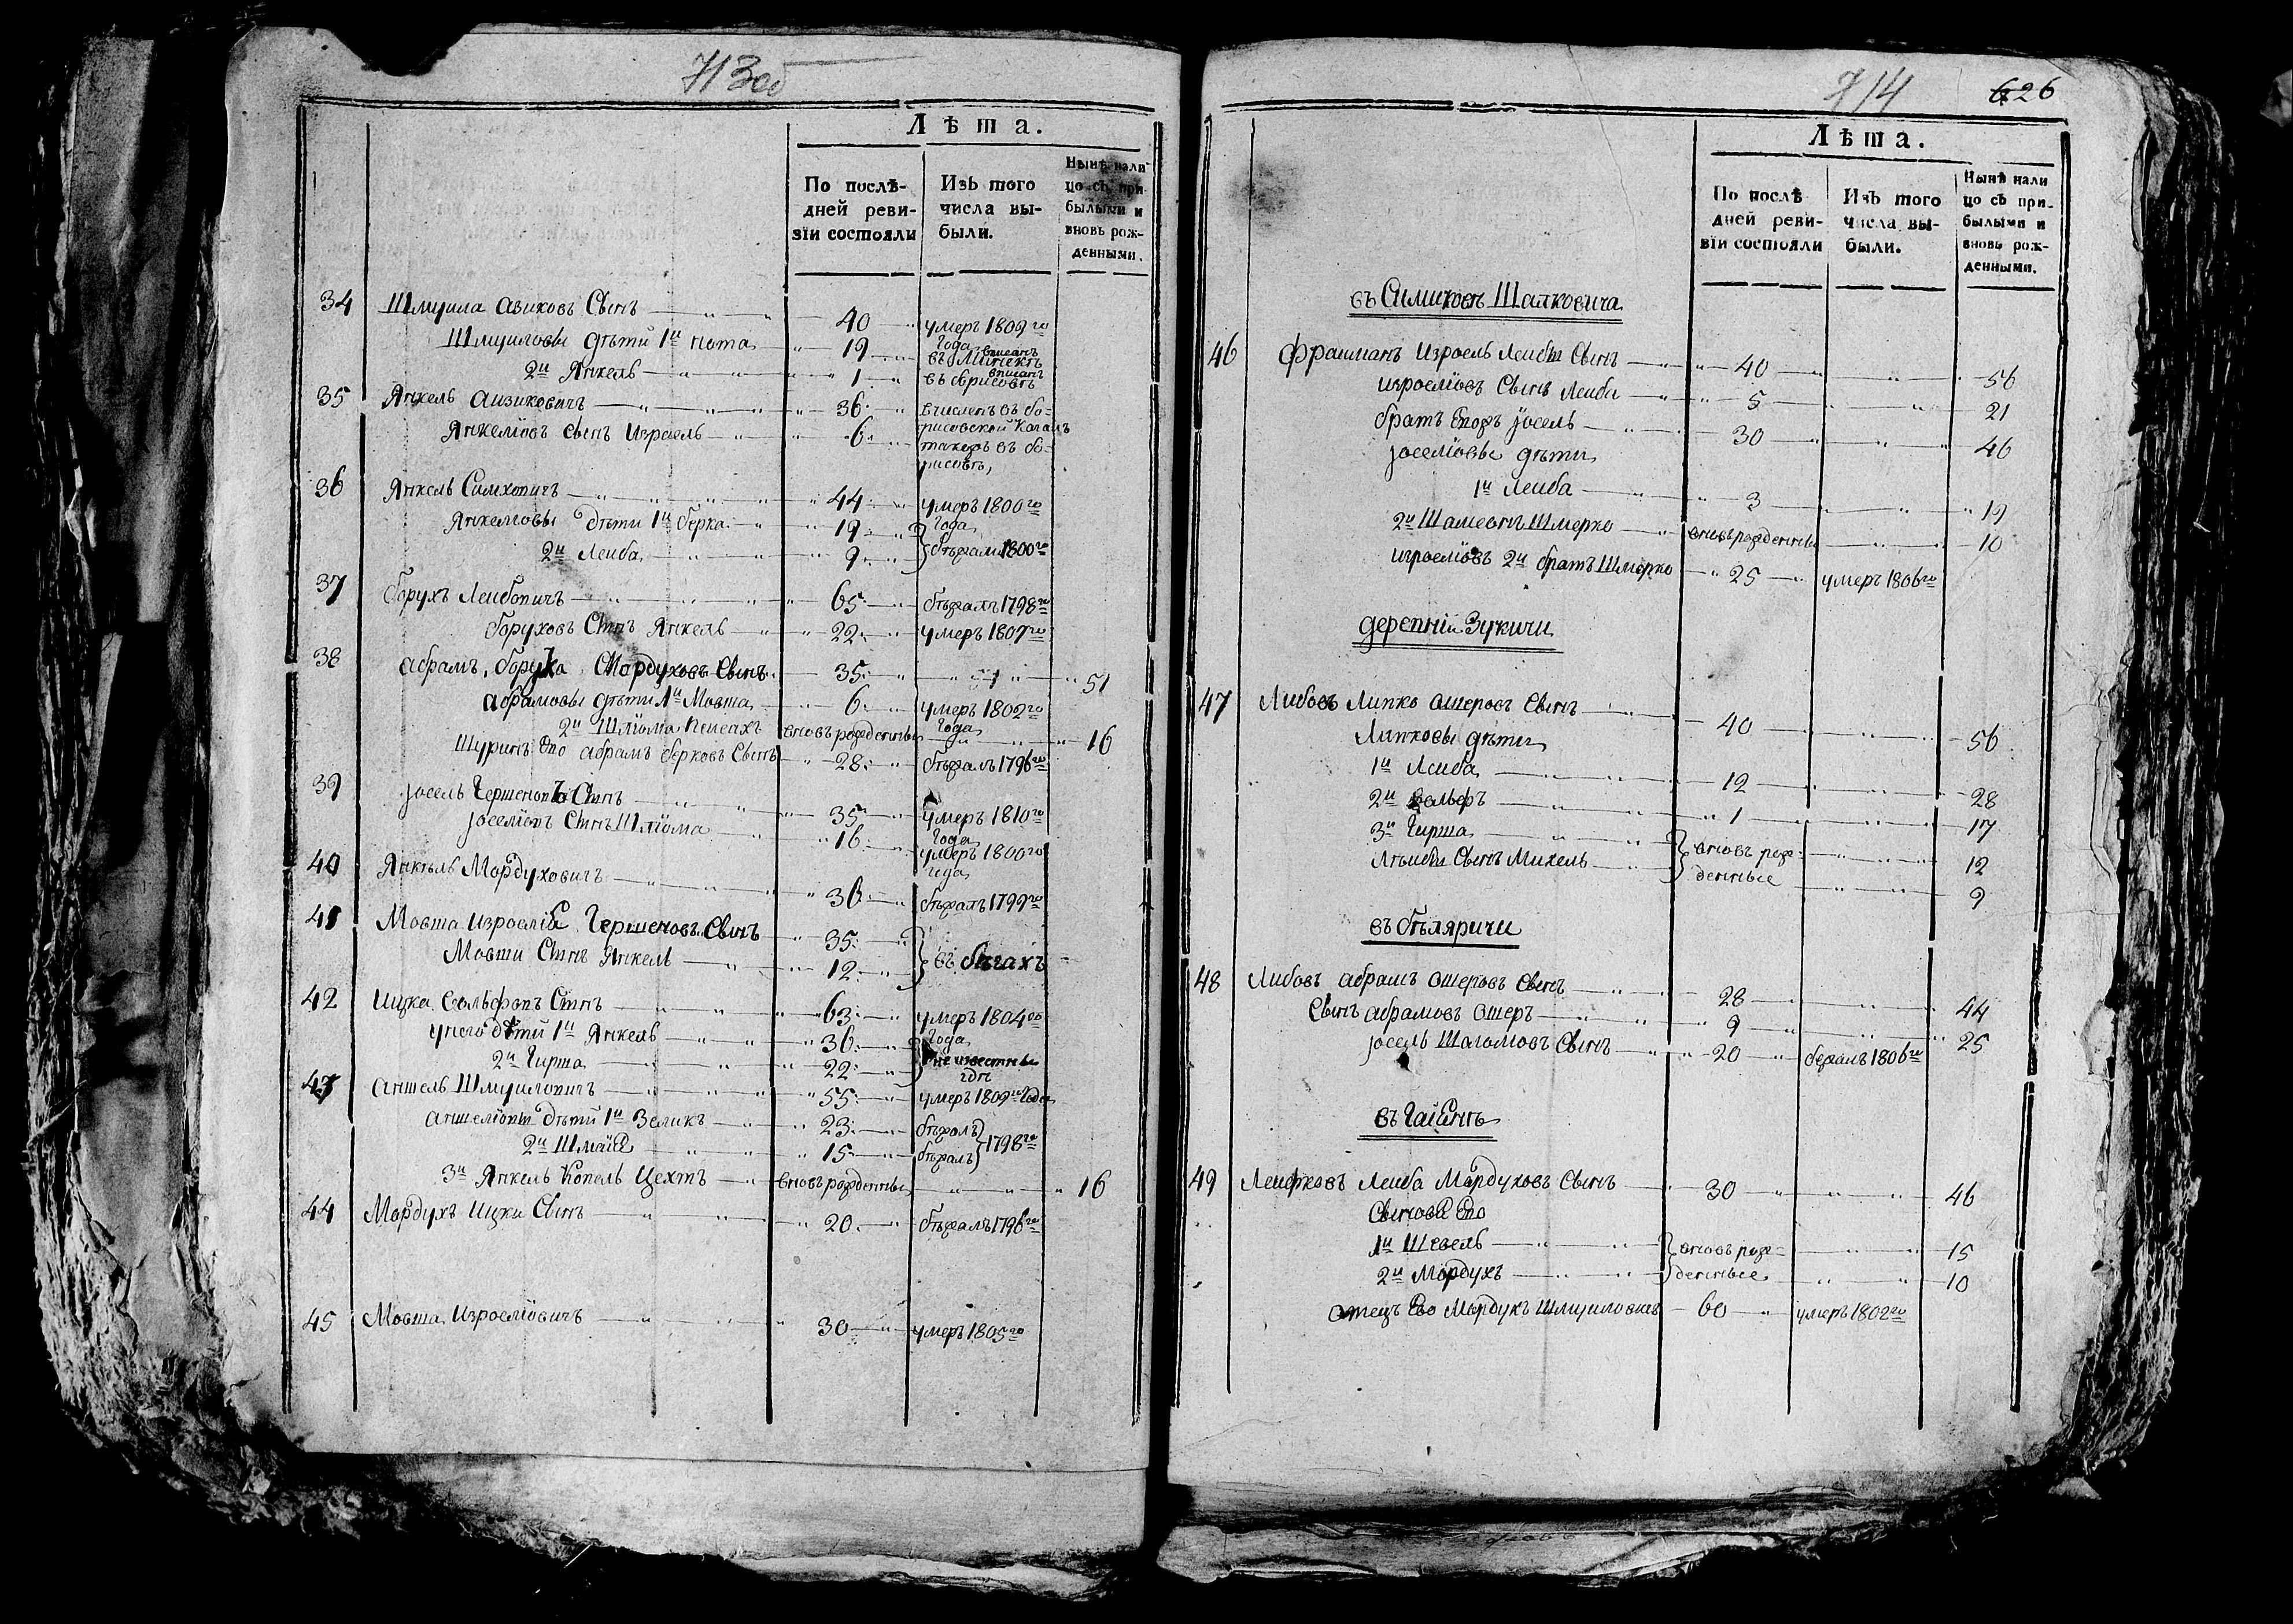 713 об
Лѣта.
По послѣ-
дней реви-
зіи состояли
Изъ того
числа вы-
были.
Нынѣ нали
цо съ при-
былыми и
вновь рож-
денными.
34 Шмуила Авиковъ Сынъ 40 умеръ 1809го
Года
Шмуиловы дѣти 1й Нота 19 вписанъ
въ Минскѣ
2й Янкель 1 вписанъ
въ борисовѣ
35 Янкель Аизиковичъ 36 вчисленъ въ бо-
рисовской Кагалъ
Янкеліовъ сынъ Израель 6 также въ бо-
рисовѣ
36 Янкель Симховичъ 44 умеръ 1800го
Года
Янкелювы Дѣти 1й берка 19
2й Леиба 9 бѣжали 1800го
37 Борухъ Леибовичъ 65 бѣжалъ 1798го
Боруховъ Сынъ Янкель 22 умеръ 1807го
38 Абрамъ, Боруха Мордуховъ Сынъ 35 51
Абрамовы дѣти 1й Мовша 6 умеръ 1802го
Года
2й Шліома Пеисахъ вновь рожденны 16
Шуринъ Его Абрамъ берковъ Сынъ 28 бѣжалъ 1796го
39 Іосель Гершеновъ Сынъ 35 умеръ 1810го
Года
Іоселіовъ Сынъ Шліома 16 умеръ 1800го
года
40 Янкель Мордуховичъ 36 бѣжалъ 1799го
41 Мовша Изроеліе Гершеновъ Сынъ 35
Мовши Сынъ Янкель 12 въ бѣгахъ
42 Ицка Вольфовъ Сынъ 63 умеръ 1804го
Года
унего дѣти 1й Янкель 36
2й Гирша 22 неизвестны
гдѣ
43 Аншель Шмуиловичъ 55 умеръ 1809го Года
Аншеліовы Дѣти 1й Зеликъ 23 бѣжалъ
2й Шмаіе 15 бѣжалъ 1798го
3й Янкель Копель Цехтъ вновь рожденны 16
44 Мордухъ Ицки Сынъ 20 бѣжалъ 1796го
45 Мовша Изроеліовичъ 30 умеръ 1805го
714 626
Лѣта.
По послѣ
дней реви-
зіи состояли
Изъ того
числа вы-
были.
Нынѣ нали
цо съ при-
былыми и
вновь рож-
денными.
въ Шапковича
46 Фраиманъ Изроель Леибы Сынъ 40 56
Изроеліовъ Сынъ Леиба 5 21
братъ Егожъ Іосель 30 46
Іоселіовы дѣти
1й Леиба 3 19
2й Шамеонъ Шмерко вновь рожденны 10
Изроеліовъ 2й братъ Шмерко 25 умеръ 1806го
деревніи Зукичи
47 Либовъ Липко Ошеровъ Сынъ 40 56
Липковы дѣти
1й Леиба 12 28
2й Вольфъ 1 17
3й Гирша вновь рож- 12
Леибы Сынъ Михель денные 9
въ бѣляричи
48 Либовъ Абрамъ Ошеровъ Сынъ 28 44
Сынъ Абрамовъ Ошеръ 9 25
Іосель Шаломовъ Сынъ 20 бежалъ 1806го
въ Гаіенѣ
49 Леифковъ Леиба Мордуховъ Сынъ 30 46
Сыновѣ Его
1й Шевель вновь рож- 15
2й Мордухъ денные 10
отецъ Ево Мордухъ Шмуиловичъ 60 умеръ 1802го